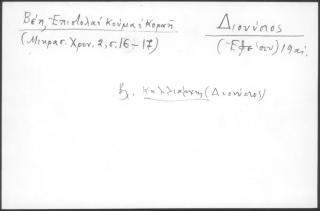 Βέη, Επιστολαί Κούμα, Κοραῆ
(Μικρασ. Χρον. 2, σ. 16-17)
Διονύσιος
(Ἐφέσου) 19 αἰ.
βλ. Καλλιάρχης (Διονύσιος)